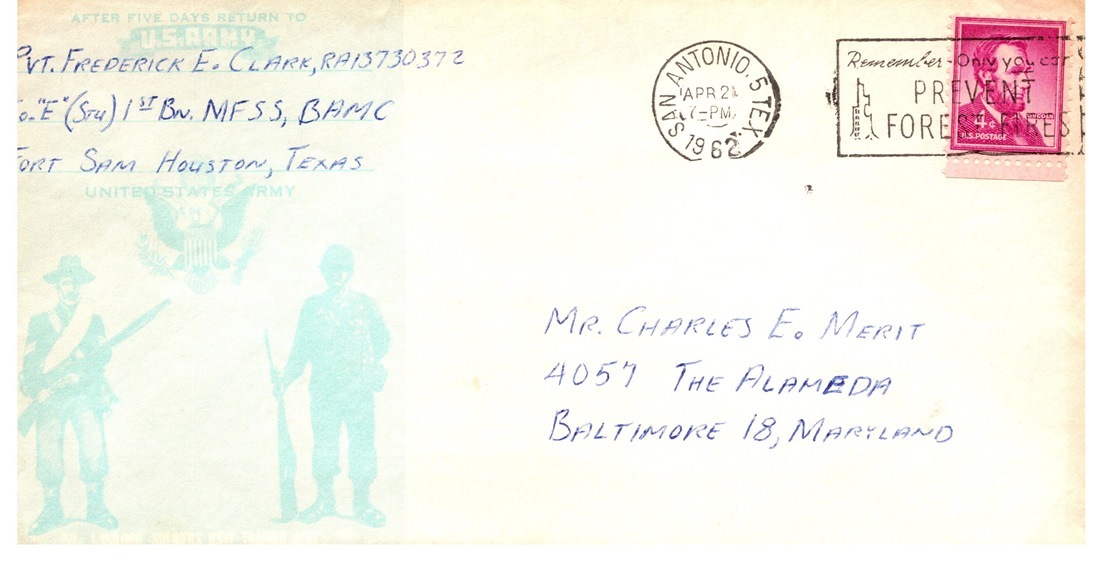 AFTER FIVE DAYS RETURN TO
U.S. ARMY
PVT. FREDERICK E. CLARK, RA13730372
Co. "E" (STU) 1ST BN. MFSS, BAMC
FORT SAM HOUSTON, TEXAS
UNITED STATES ARMY
SAN ANTONIO, 5 TEX.
APR 21
7-PM
1962
Remember-Only you can
PREVENT
FOREST FIRES
4¢
LINCOLN
U.S. POSTAGE
MR. CHARLES E. MERIT
4057 THE ALAMEDA
BALTIMORE 18, MARYLAND